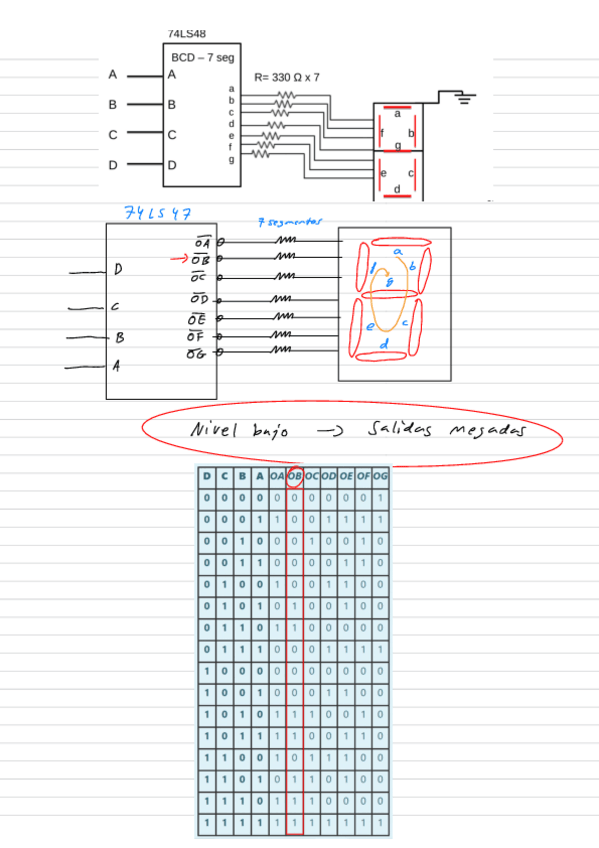 74LS48
BCD – 7 seg
R= 330 Ω x 7
A A a
B B b
C C c
D D d
e
f
g
a
f b
g
e c
d
74LS47
7 segmentos
D
C
B
A
OA
OB
OC
OD
OE
OF
OG
a
f b
g
e c
d
Nivel bajo → Salidas negadas
D C B A OA OB OC OD OE OF OG
0 0 0 0 0 0 0 0 0 0 1
0 0 0 1 1 0 0 1 1 1 1
0 0 1 0 0 0 1 0 0 1 0
0 0 1 1 0 0 0 0 1 1 0
0 1 0 0 1 0 0 1 1 0 0
0 1 0 1 0 1 0 0 1 0 0
0 1 1 0 1 1 0 0 0 0 0
0 1 1 1 0 0 0 1 1 1 1
1 0 0 0 0 0 0 0 0 0 0
1 0 0 1 0 0 0 1 1 0 0
1 0 1 0 1 1 1 0 0 1 0
1 0 1 1 1 1 0 0 1 1 0
1 1 0 0 1 0 1 1 1 0 0
1 1 0 1 0 1 1 0 1 0 0
1 1 1 0 1 1 1 0 0 0 0
1 1 1 1 1 1 1 1 1 1 1